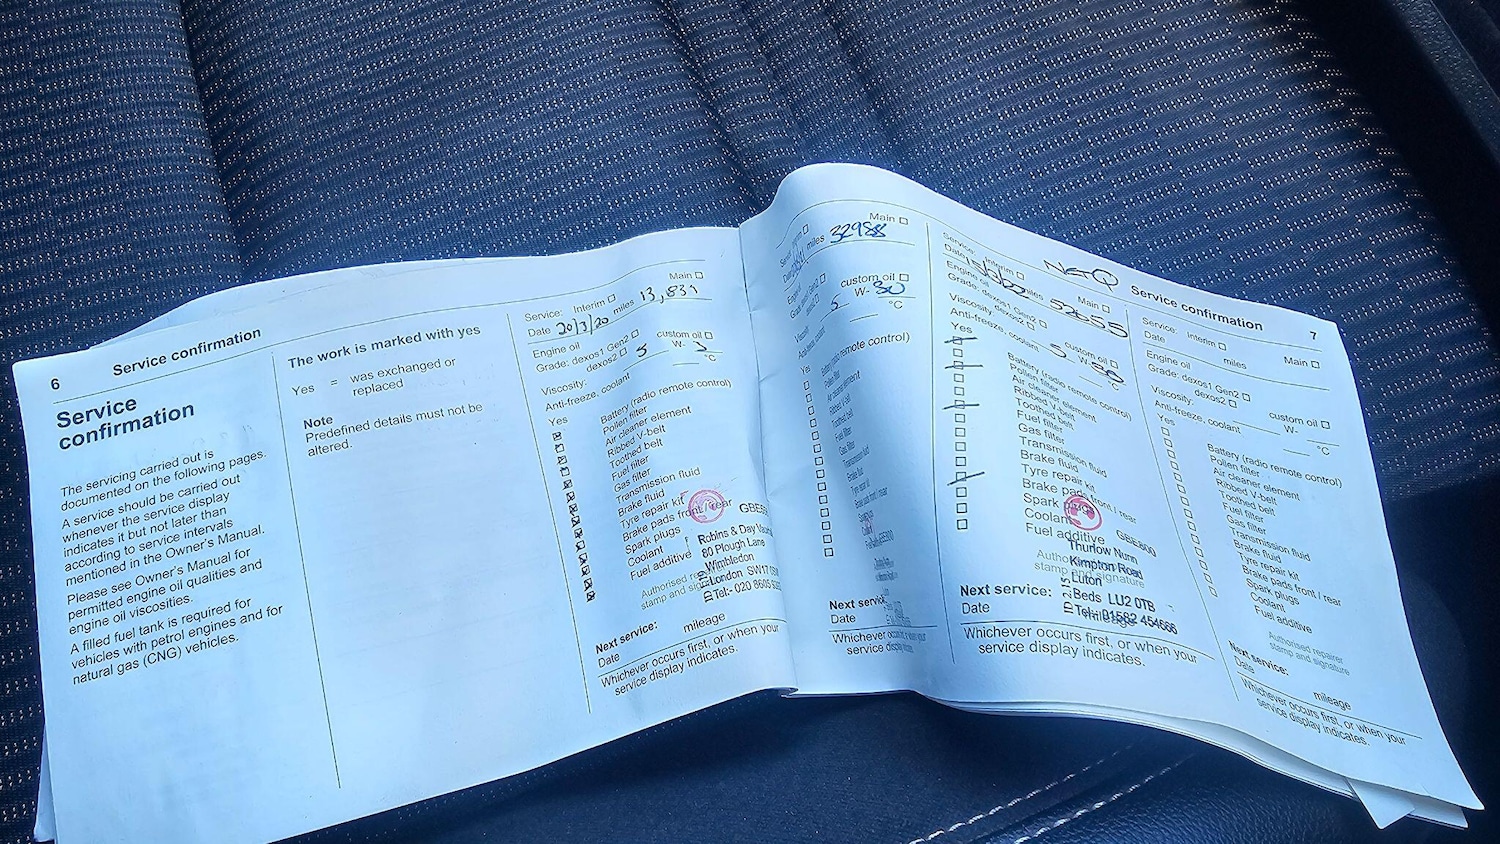 6
Service confirmation
Service
confirmation
The servicing carried out is
documented on the following pages.
A service should be carried out
whenever the service display
indicates it but not later than
according to service intervals
mentioned in the Owner's Manual.
Please see Owner's Manual for
permitted engine oil qualities and
engine oil viscosities.
A filled fuel tank is required for
vehicles with petrol engines and for
natural gas (CNG) vehicles.
The work is marked with yes
Yes = was exchanged or
replaced
Note
Predefined details must not be
altered.
Service: Interim Main
Date 20/3/20 miles 13,839
Engine oil
Grade: dexos1 Gen2 custom oil
dexos2 W-
Viscosity: 5 °C
Anti-freeze, coolant
Yes
Battery (radio remote control)
Pollen filter
Air cleaner element
Ribbed V-belt
Toothed belt
Fuel filter
Gas filter
Transmission fluid
Brake fluid
Tyre repair kit
Brake pads front / rear
Spark plugs
Coolant
Fuel additive
Authorised
stamp and
Robins & Day
80 Plough Lane
Wimbledon
London SW17
Tel:- 020 8605
Next service:
Date mileage
Whichever occurs first, or when your
service display indicates.
Main
miles 32988
custom oil
5 W- 30
°C
Yes
remote control)
Next
Date
Whichever occurs or when your
service display
Service confirmation 7
Service: Interim Main
Date 15/3/22 miles 52655
Engine oil
Grade: dexos1 Gen2 custom oil
dexos2 W- 30
Viscosity: 5 °C
Anti-freeze, coolant
Yes
Battery (radio remote control)
Pollen filter
Air cleaner element
Ribbed V-belt
Toothed belt
Fuel filter
Gas filter
Transmission fluid
Brake fluid
Tyre repair kit
Brake pads front / rear
Spark plugs
Coolant
Fuel additive
GBE800
stamp and signature
Thurlow Nunn
Kimpton Road
Luton
Beds LU2 0TB
Tel:- 01582 454666
Next service:
Date
Whichever occurs first, or when your
service display indicates.
Service: Interim Main
Date miles
Engine oil
Grade: dexos1 Gen2 custom oil
dexos2 W-
Viscosity: °C
Anti-freeze, coolant
Yes
Battery (radio remote control)
Pollen filter
Air cleaner element
Ribbed V-belt
Toothed belt
Fuel filter
Gas filter
Transmission fluid
Brake fluid
Tyre repair kit
Brake pads front / rear
Spark plugs
Coolant
Fuel additive
Authorised repairer
stamp and signature
Next service:
Date mileage
Whichever occurs first, or when your
service display indicates.